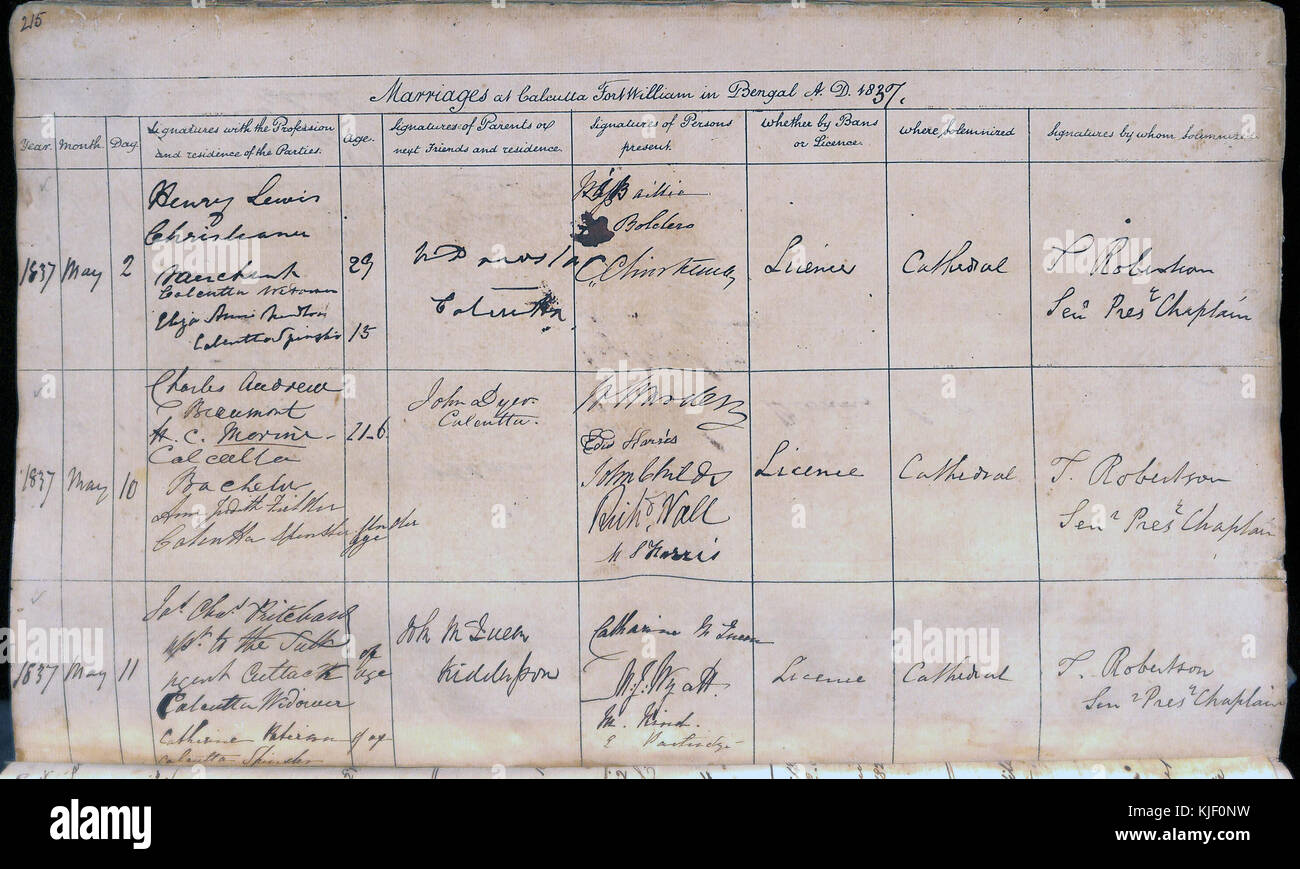 215
Marriages at Calcutta Fort William in Bengal A. D. 1837.
Year. Month. Day.
Signatures with the Profession
and residence of the Parties.
Age.
Signatures of Parents or
next Friends and residence.
Signatures of Persons
present.
Whether by Bans
or Licence.
Where Solemnized
Signatures by whom Solemnized
1837 May 2
Henry Lewis
Christiana
Merchant
Calcutta Widower
29
Eliza Anne
Calcutta Spinster
15
Calcutta
Baillie
Bolders
C.
Licence
Cathedral
T. Robertson
Senr Presy Chaplain
1837 May 10
Charles Andrew
Beaumont
H. C. Marine
Calcutta
Bachelor
21-6
Ann Judith
Calcutta Spinster
Under
age
John Dyer
Calcutta.
Edw Harris
John Childs
Richd Wall
Harris
Licence
Cathedral
T. Robertson
Senr Presy Chaplain
1837 May 11
Jas Chas Pritchard
Asst to the Salt
Agent Cuttack
Calcutta Widower
of
age
Catherine
Calcutta Spinster
of age
John McQueen
Kidderpoor
Catharine McQueen
Wyatt
M. Hind
E Partridge
Licence
Cathedral
T. Robertson
Senr Presy Chaplain
alamy
alamy stock photo
KJF0NW
www.alamy.com